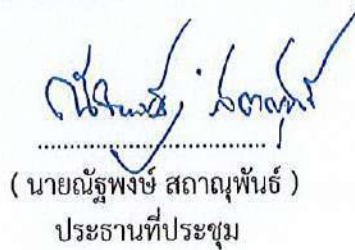 ( นายณัฐพงษ์ สถาณุพันธ์ )
ประธานที่ประชุม